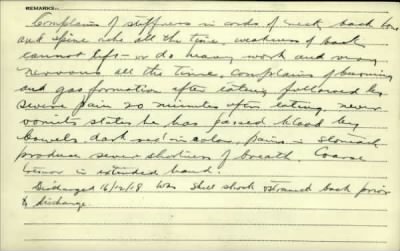 REMARKS—
Complains of stiffness in cords of neck back bone
and spine ache all the time, weakness of back
cannot lift - or do heavy work and very
nervous all the time. Complains of burning
and gas formation after eating followed by
severe pain 20 minutes after eating, never
vomits states he has passed blood by
bowels, dark red in color, pains in stomach
produce severe shortness of breath, Coarse
tremor in extended hand.
Discharged 16/12/18 Was Shell Shock strained back prior
to discharge.